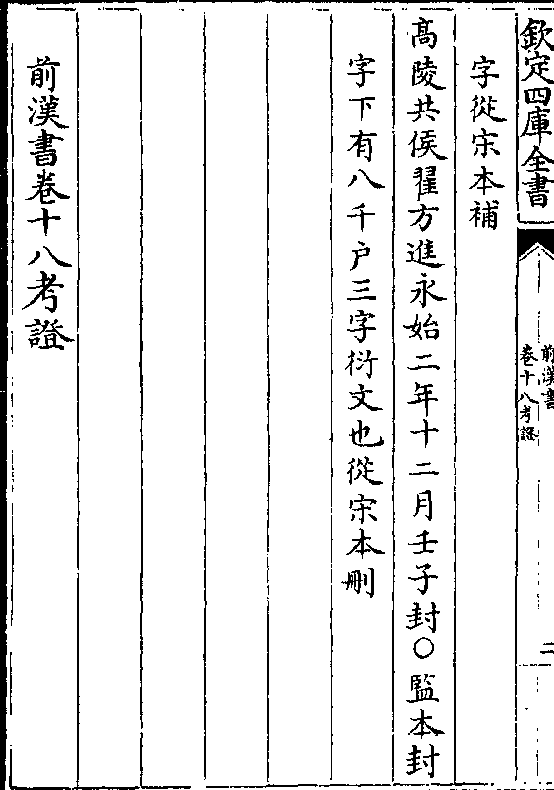 欽定四庫全書
前漢書
卷十八考證
二
字從宋本補
高陵共侯翟方進永始二年十二月壬子封○監本封
字下有八千户三字衍文也從宋本刪
前漢書卷十八考證